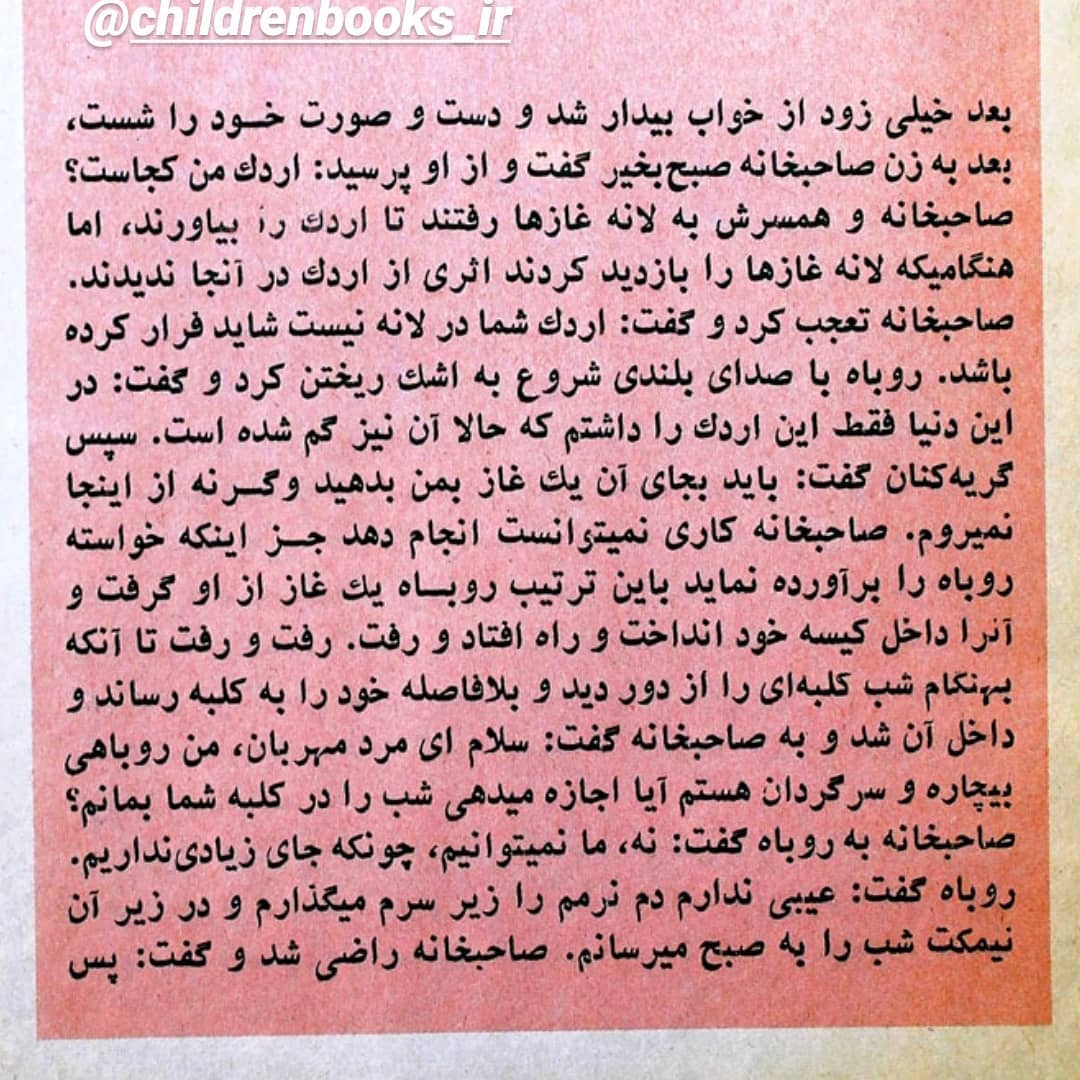 @childrenbooks_ir
بعد خیلی زود از خواب بیدار شد و دست و صورت خود را شست،
بعد به زن صاحبخانه صبح‌بخیر گفت و از او پرسید: اردك من کجاست؟
صاحبخانه و همسرش به لانه غازها رفتند تا اردك را بیاورند، اما
هنگامیکه لانه غازها را بازدید کردند اثری از اردك در آنجا ندیدند.
صاحبخانه تعجب کرد و گفت: اردك شما در لانه نیست شاید فرار کرده
باشد. روباه با صدای بلندی شروع به اشك ریختن کرد و گفت: در
این دنیا فقط این اردك را داشتم که حالا آن نیز گم شده است. سپس
گریه‌کنان گفت: باید بجای آن یك غاز بمن بدهید وگرنه از اینجا
نمیروم. صاحبخانه کاری نمیتوانست انجام دهد جز اینکه خواسته
روباه را برآورده نماید باین ترتیب روباه یك غاز از او گرفت و
آنرا داخل کیسه خود انداخت و راه افتاد و رفت. رفت و رفت تا آنکه
بهنگام شب کلبه‌ای را از دور دید و بلافاصله خود را به کلبه رساند و
داخل آن شد و به صاحبخانه گفت: سلام ای مرد مهربان، من روباهی
بیچاره و سرگردان هستم آیا اجازه میدهی شب را در کلبه شما بمانم؟
صاحبخانه به روباه گفت: نه، ما نمیتوانیم، چونکه جای زیادی‌نداریم.
روباه گفت: عیبی ندارم دم نرمم را زیر سرم میگذارم و در زیر آن
نیمکت شب را به صبح میرسانم. صاحبخانه راضی شد و گفت: پس